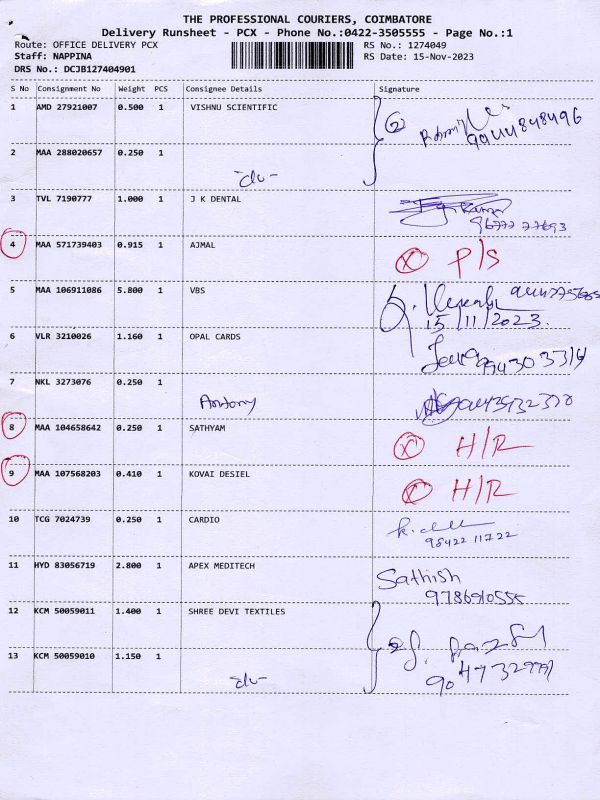 THE PROFESSIONAL COURIERS, COIMBATORE
Delivery Runsheet - PCX - Phone No.:0422-3505555 - Page No.:1
Route: OFFICE DELIVERY PCX RS No.: 1274049
Staff: NAPPINA RS Date: 15-Nov-2023
DRS No.: DCJB127404901
S No Consignment No Weight PCS Consignee Details Signature
1 AMD 27921007 0.500 1 VISHNU SCIENTIFIC
② 9944848496
2 MAA 288020657 0.250 1
-do-
3 TVL 7190777 1.000 1 J K DENTAL
4 MAA 571739403 0.915 1 AJMAL X P/S
5 MAA 106911086 5.800 1 VBS
15/11/2023.
6 VLR 3210026 1.160 1 OPAL CARDS
7 NKL 3273076 0.250 1
Antony
8 MAA 104658642 0.250 1 SATHYAM X H/R
9 MAA 107568203 0.410 1 KOVAI DESIEL X H/R
10 TCG 7024739 0.250 1 CARDIO
98422 11722
11 HYD 83056719 2.800 1 APEX MEDITECH Sathish
9786910555
12 KCM 50059011 1.400 1 SHREE DEVI TEXTILES
13 KCM 50059010 1.150 1
-do-